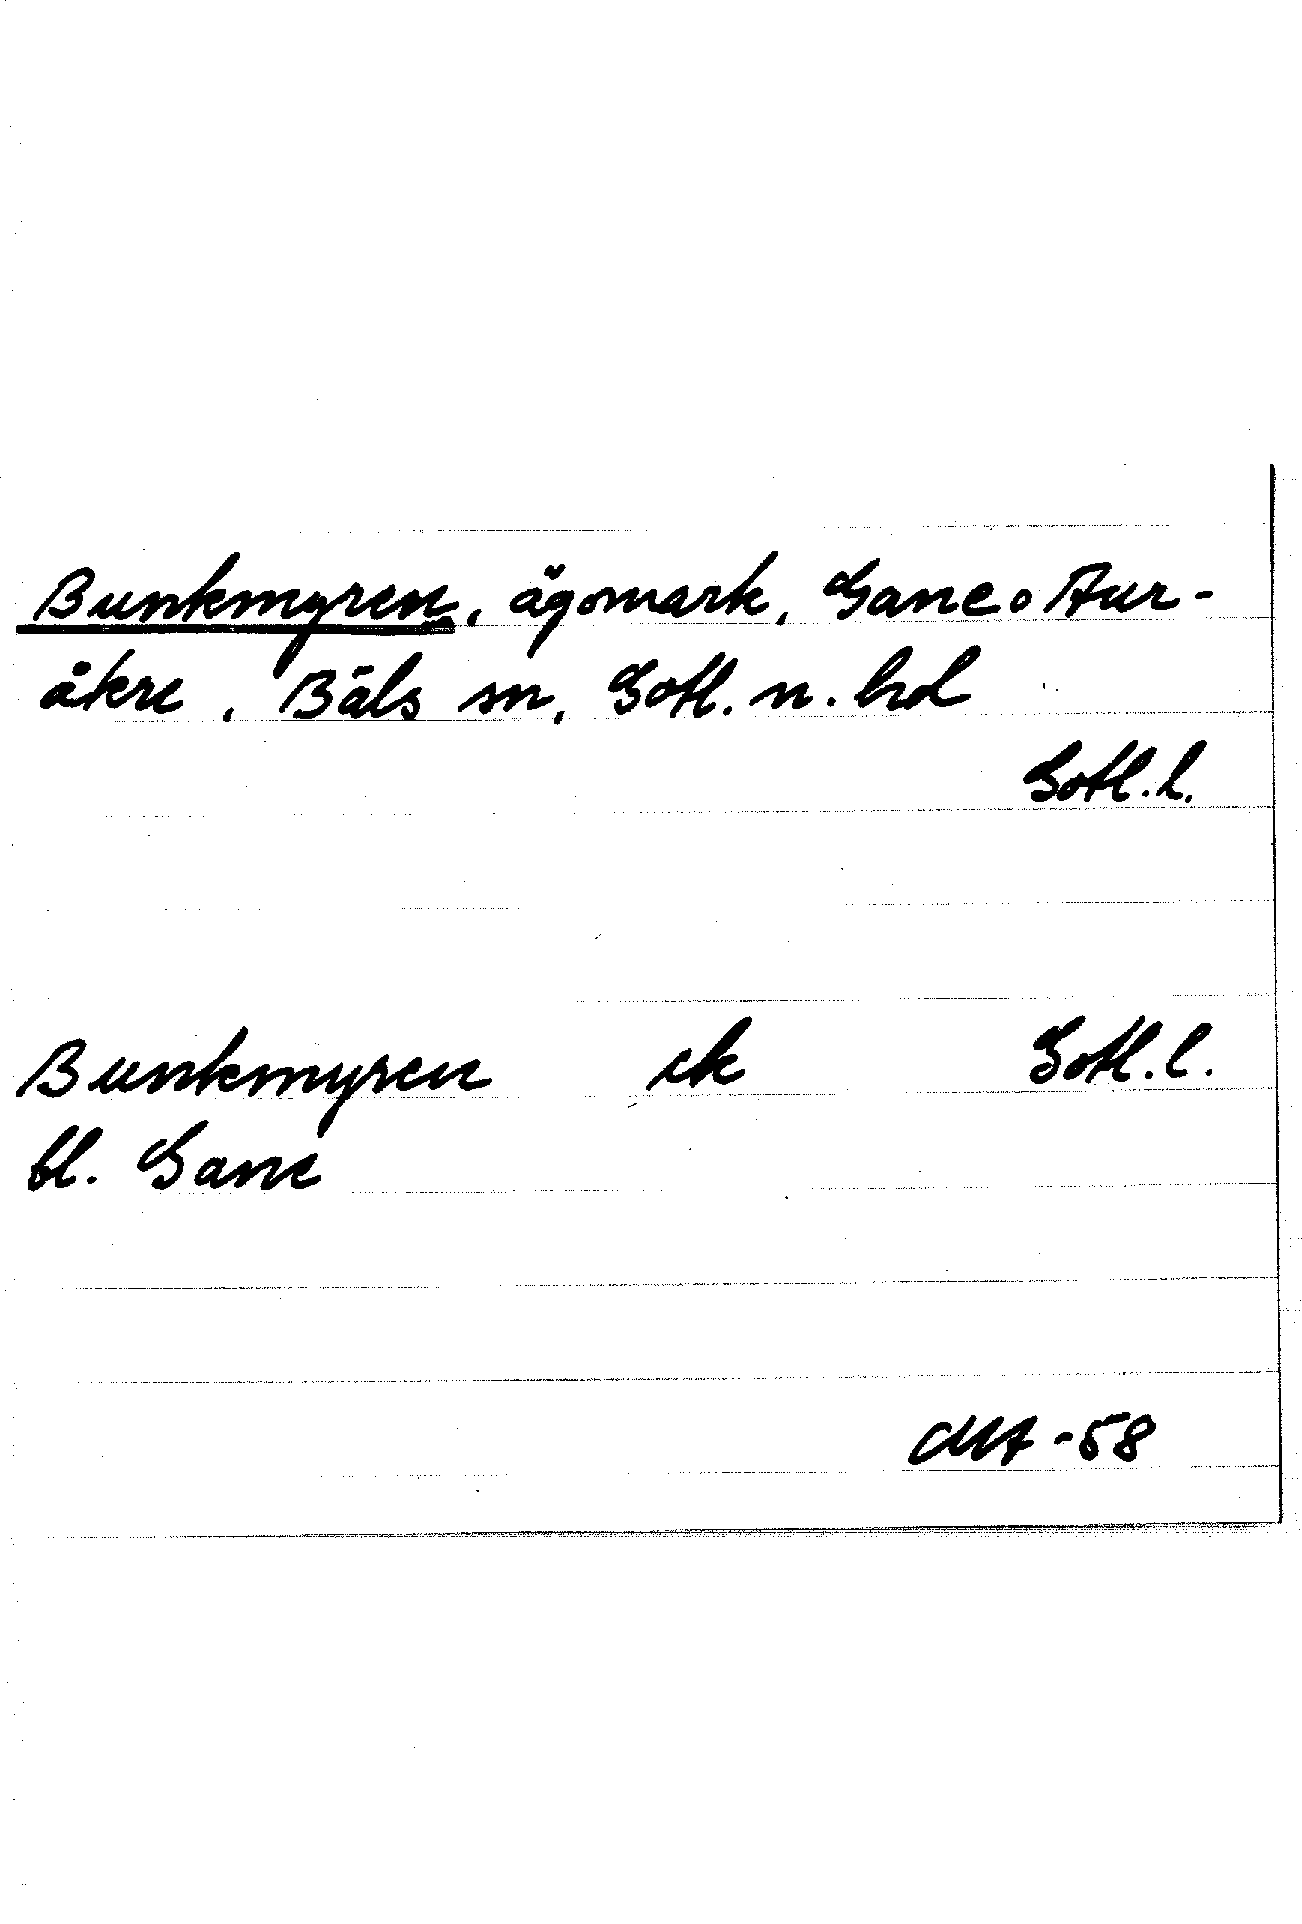 Bunkmyren, ägomark, Gane o Aur-
åkre, Bäls sn, Gotl. n. hd
Gotl. l.
Bunkmyren ek Gotl. l.
bl. Gane
-58